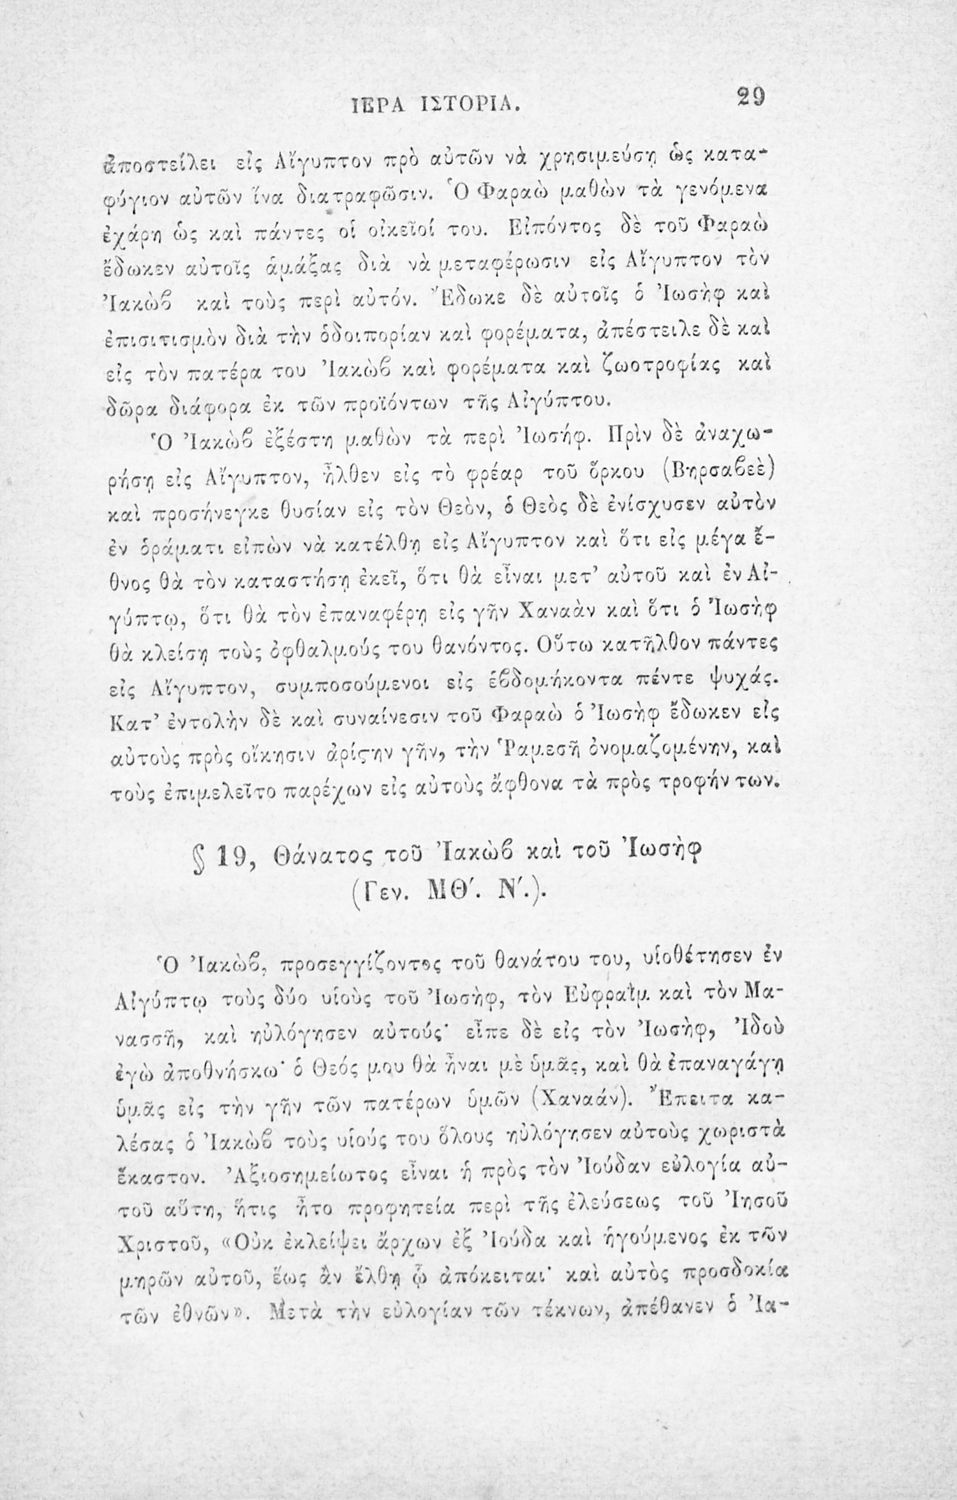 ΙΕΡΑ ΙΣΤΟΡΙΑ. 29
ἀποστείλει εἰς Αἴγυπτον πρὸ αὐτῶν νὰ χρησιμεύσῃ ὡς κατα-
φύγιον αὐτῶν ἵνα διατραφῶσιν. Ὁ Φαραὼ μαθὼν τὰ γενόμενα
ἐχάρη ὡς καὶ πάντες οἱ οἰκεῖοί του. Εἰπόντος δὲ τοῦ Φαραὼ
ἔδωκεν αὐτοῖς ἁμάξας διὰ νὰ μεταφέρωσιν εἰς Αἴγυπτον τὸν
Ἰακὼϐ καὶ τοὺς περὶ αὐτόν. Ἔδωκε δὲ αὐτοῖς ὁ Ἰωσὴφ καὶ
ἐπισιτισμὸν διὰ τὴν ὁδοιπορίαν καὶ φορέματα, ἀπέστειλε δὲ καὶ
εἰς τὸν πατέρα του Ἰακὼϐ καὶ φορέματα καὶ ζωοτροφίας καὶ
δῶρα διάφορα ἐκ τῶν προϊόντων τῆς Αἰγύπτου.
Ὁ Ἰακὼϐ ἐξέστη μαθὼν τὰ περὶ Ἰωσήφ. Πρὶν δὲ ἀναχω-
ρήσῃ εἰς Αἴγυπτον, ἦλθεν εἰς τὸ φρέαρ τοῦ ὅρκου (Βηρσαϐεὲ)
καὶ προσήνεγκε θυσίαν εἰς τὸν Θεὸν, ὁ Θεὸς δὲ ἐνίσχυσεν αὐτὸν
ἐν ὁράματι εἰπὼν νὰ κατέλθῃ εἰς Αἴγυπτον καὶ ὅτι εἰς μέγα ἔ-
θνος θὰ τὸν καταστήσῃ ἐκεῖ, ὅτι θὰ εἶναι μετ' αὐτοῦ καὶ ἐν Αἰ-
γύπτῳ, ὅτι θὰ τὸν ἐπαναφέρῃ εἰς γῆν Χαναὰν καὶ ὅτι ὁ Ἰωσὴφ
θὰ κλείσῃ τοὺς ὀφθαλμούς του θανόντος. Οὕτω κατῆλθον πάντες
εἰς Αἴγυπτον, συμποσούμενοι εἰς ἑϐδομήκοντα πέντε ψυχάς.
Κατ' ἐντολὴν δὲ καὶ συναίνεσιν τοῦ Φαραὼ ὁ Ἰωσὴφ ἔδωκεν εἰς
αὐτοὺς πρὸς οἴκησιν ἀρίςην γῆν, τὴν Ῥαμεσῆ ὀνομαζομένην, καὶ
τοὺς ἐπιμελεῖτο παρέχων εἰς αὐτοὺς ἄφθονα τὰ πρὸς τροφήν των.
§ 19, Θάνατος τοῦ Ἰακὼϐ καὶ τοῦ Ἰωσὴφ
(Γεν. ΜΘ'. Ν'.).
Ὁ Ἰακὼϐ, προσεγγίζοντος τοῦ θανάτου του, υἱοθέτησεν ἐν
Αἰγύπτῳ τοὺς δύο υἱοὺς τοῦ Ἰωσὴφ, τὸν Εὐφραῒμ καὶ τὸν Μα-
νασσῆ, καὶ ηὐλόγησεν αὐτούς· εἶπε δὲ εἰς τὸν Ἰωσὴφ, Ἰδοὺ
ἐγὼ ἀποθνήσκω· ὁ Θεός μου θὰ ἦναι μὲ ὑμᾶς, καὶ θὰ ἐπαναγάγῃ
ὑμᾶς εἰς τὴν γῆν τῶν πατέρων ὑμῶν (Χαναάν). Ἔπειτα κα-
λέσας ὁ Ἰακὼϐ τοὺς υἱούς του ὅλους ηὐλόγησεν αὐτοὺς χωριστὰ
ἕκαστον. Ἀξιοσημείωτος εἶναι ἡ πρὸς τὸν Ἰούδαν εὐλογία αὐ-
τοῦ αὕτη, ἥτις ἦτο προφητεία περὶ τῆς ἐλεύσεως τοῦ Ἰησοῦ
Χριστοῦ, «Οὐκ ἐκλείψει ἄρχων ἐξ Ἰούδα καὶ ἡγούμενος ἐκ τῶν
μηρῶν αὐτοῦ, ἕως ἂν ἔλθῃ ᾧ ἀπόκειται· καὶ αὐτὸς προσδοκία
τῶν ἐθνῶν». Μετὰ τὴν εὐλογίαν τῶν τέκνων, ἀπέθανεν ὁ Ἰα-